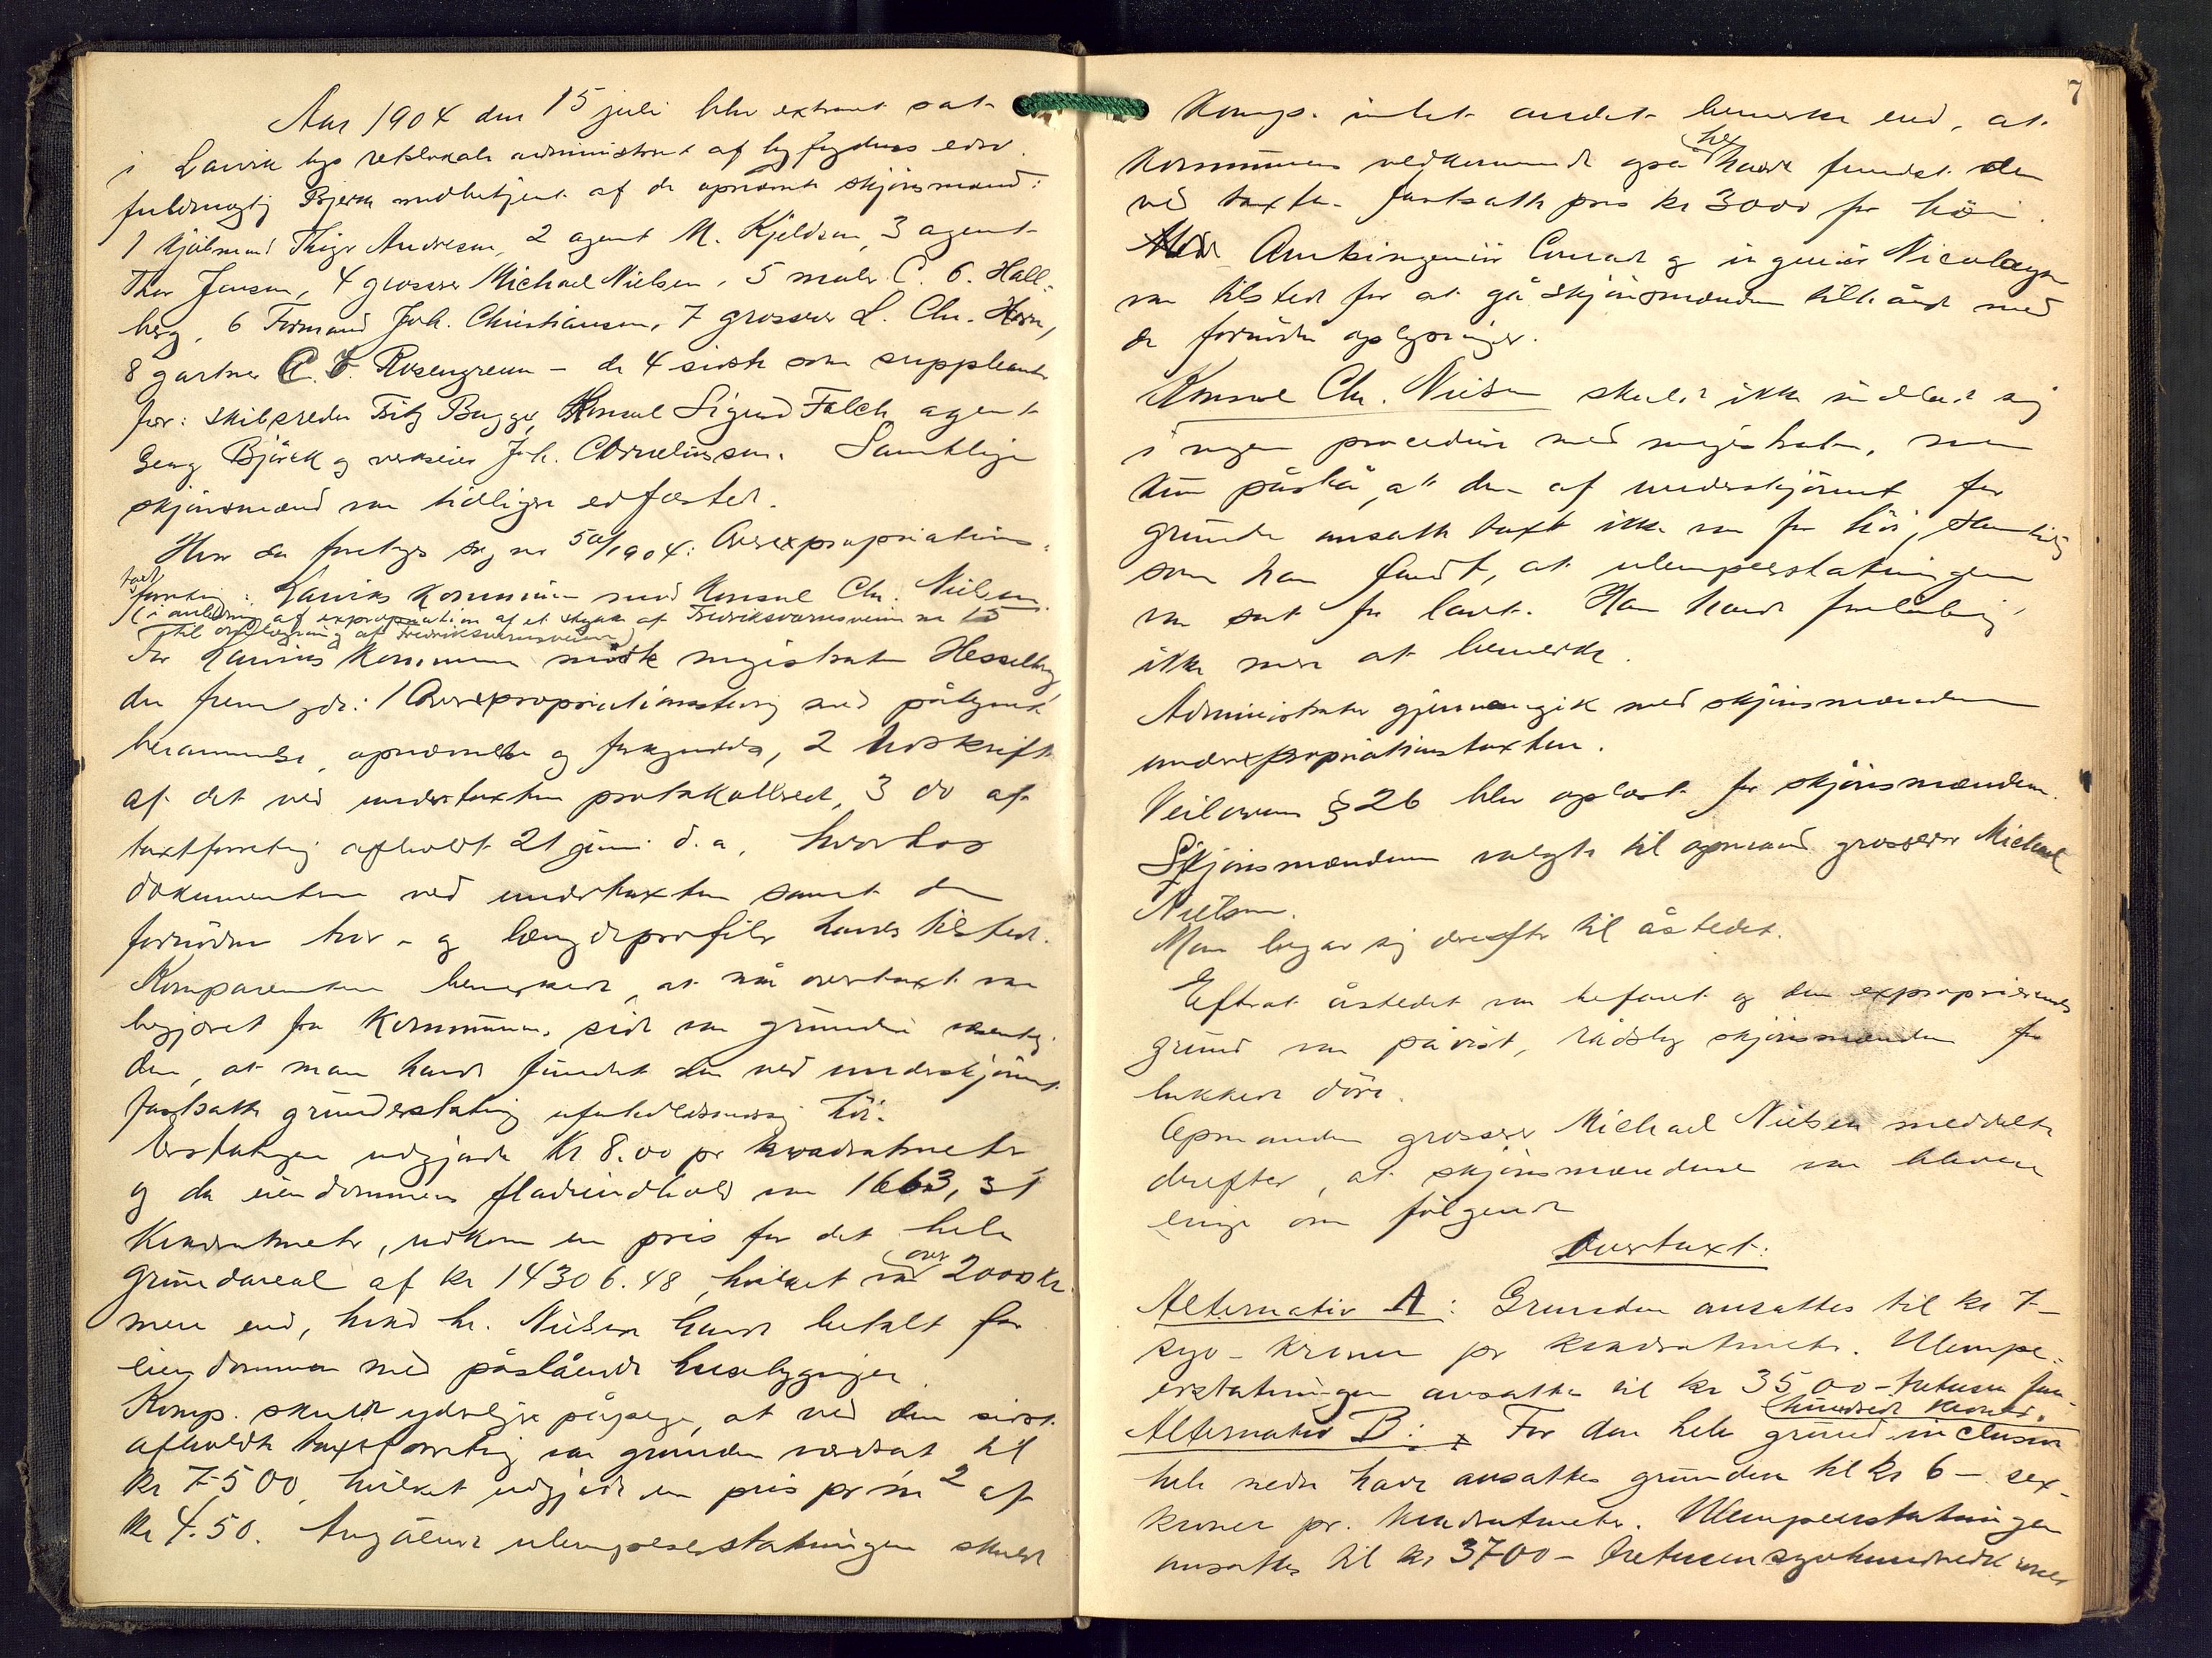 Aar 1904 den 15 juli blev extraret sat
i Larvik bys retslokale administreret af byfogdens edsv.
fuldmægtig Bjerke medbetjent af de opnævnte skjönsmænd:
1 kjöbmand Thige Andresen, 2 agent M. Kjeldsen, 3 agent
Thor Jensen, 4 grosserer Michael Nielsen, 5 maler C. O. Hall-
berg, 6 Formand Joh. Christiansen, 7 grosserer L. Chr. Horn,
8 gartner C. F. Rosengreen – de 4 sidste som suppleanter
for: skibsreder Fritz Bugge, Konsul Sigurd Falch, agent
Georg Björck og verkseier Joh. Corneliussen. Samtlige
skjönsmænd var tidligere edfæstet.
Hvor da foretoges sag no 50/1904: Overexpropriations-
taxt
forretning: Larviks Kommune mod Konsul Chr. Nielsen.
(i anledning af expropriation af et stykke af Fredriksvernsveien no 15
til omlægning af Fredriksvernsveien)
For Larviks Kommune mödte magistraten Hesselberg
der fremlagde: 1 Overexpropriationsbegjæring med påtegnet
berammelse, opnævnelse og forkyndelse, 2 Udskrift
af det ved undertaxten protokollerede, 3 do af
taxtforretning afholdt 21 juni d. a., hvorhos
dokumenterne ved undertaxten samt de
fornödne tvær- og længdeprofiler havdes tilstede.
Komparenten bemerkede, at når overtaxt var
begjæret fra Kommunens side var grunden væsentlig
den, at man havde fundet den ved underskjönnet
fastsatte grunderstatning uforholdsmæssig höi.
Erstatningen udgjorde kr 8.00 pr kvadratmeter
og da eiendommens fladeindhold var 1663,31
kvadratmeter, udkom en pris for det hele
grundareal af kr 14306.48, hvilket var over 2000 kr.
mere end, hvad hr. Nielsen havde betalt for
eiendommen med påstående husebygninger.
Komp. skulde yderligere påpege, at ved den sidst
afholdte taxtforretning var grunden værdsat til
kr 7500, hvilket udgjorde en pris pr m² af
kr 4.50. Angående ulempeerstatningen skulde
7
Komp. intet andet bemerke end, at
Kommunens vedkommende også her havde fundet den
ved taxten fastsatte pris kr 3000 for höi.
Amtsingeniör Conradi og ingeniör Nicolaysen
var tilstede for at gå skjönsmænden tilhånde med
de fornödne oplysninger.
Konsul Chr. Nielsen skulde ikke indlade sig
i nogen procedure med magistraten, men
kun påstå, at den af underskjönnet for
grunden ansatte taxt ikke var for höi, samtidig
som han fandt, at ulempeerstatningen
var sat for lavt. Han havde foreløbig
ikke mere at bemerke.
Administrator gjennemgik med skjönsmændene
underexpropriationstaxten.
Veilovens § 26 blev oplæst for skjönsmændene.
Skjönsmændene valgte til opmand grosserer Michael
Nielsen.
Man begav sig derefter til åstedet.
Efterat åstedet var befaret og den exproprierende
grund var påvist, rådslog skjönsmændene for
lukkede döre.
Opmanden grosserer Michael Nielsen meddelte
derefter, at skjönsmændene var blevne
enige om fölgende
Overtaxt:
Alternativ A: Grunden ansattes til kr 7-
syv - kroner pr kvadratmeter. Ulempe-
erstatningen ansattes til kr 3500 – tretusen fem
hundrede kroner.
Alternativ B: x For den hele grund inclusive
hele nedre have ansattes grunden til kr 6 – sex-
kroner pr. kvadratmeter. Ulempeerstatningen
ansattes til kr 3700 – tretusensyvhundrede kroner